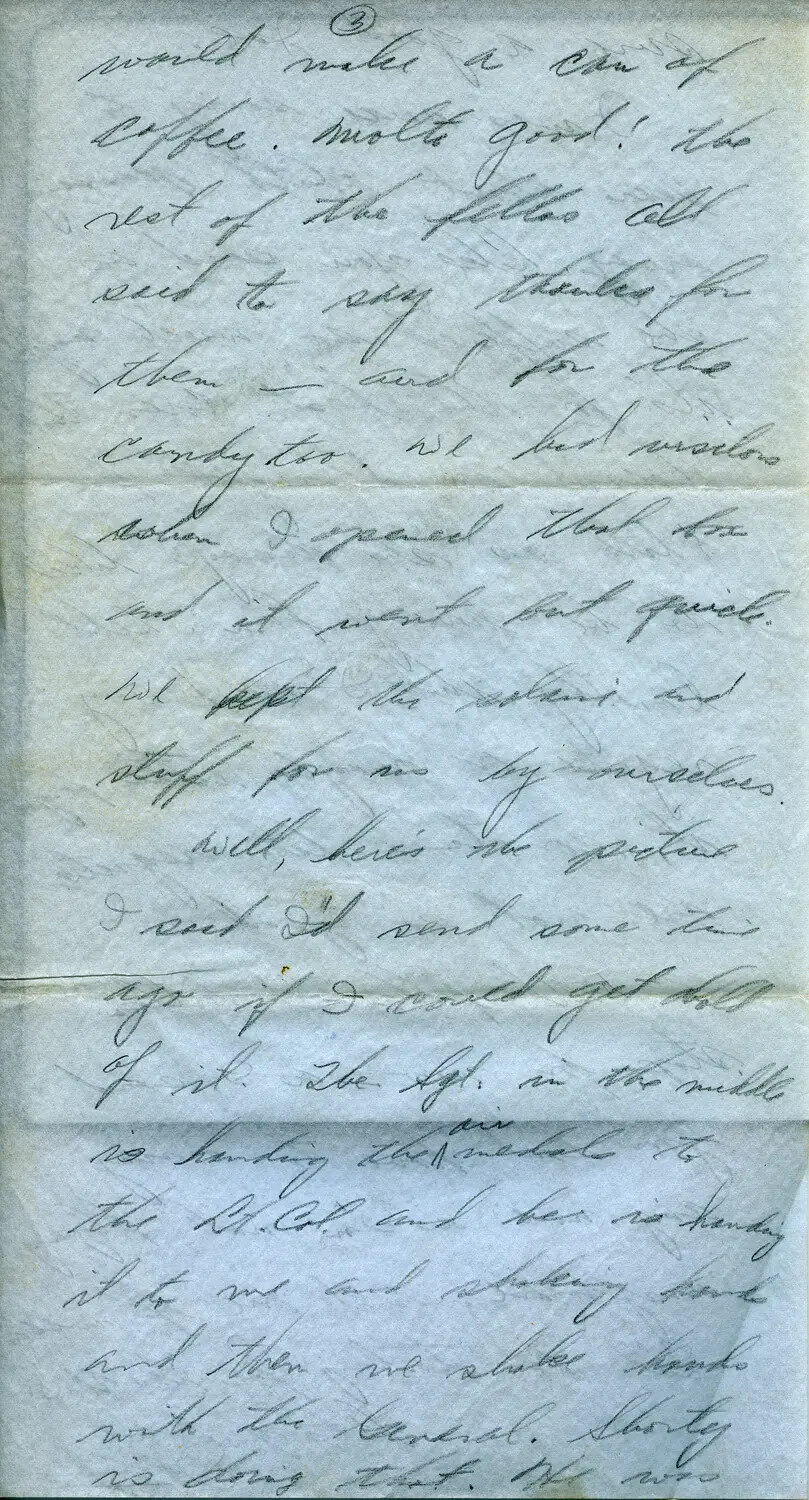 3
would make a can of
coffee. Molto good! The
rest of the fellas all
said to say thanks for
them — and for the
candy too. We had visitors
when I opened that box
and it went but quick.
We kept the salami and
stuff for us by ourselves.
Well, here's the picture
I said I'd send some time
ago if I could get ahold
of it. The Sgt. in the middle
is handing the air medals to
the Lt. Col. and he is handing
it to me and shaking hands
and then we shake hands
with the General. Shorty
is doing that. He was